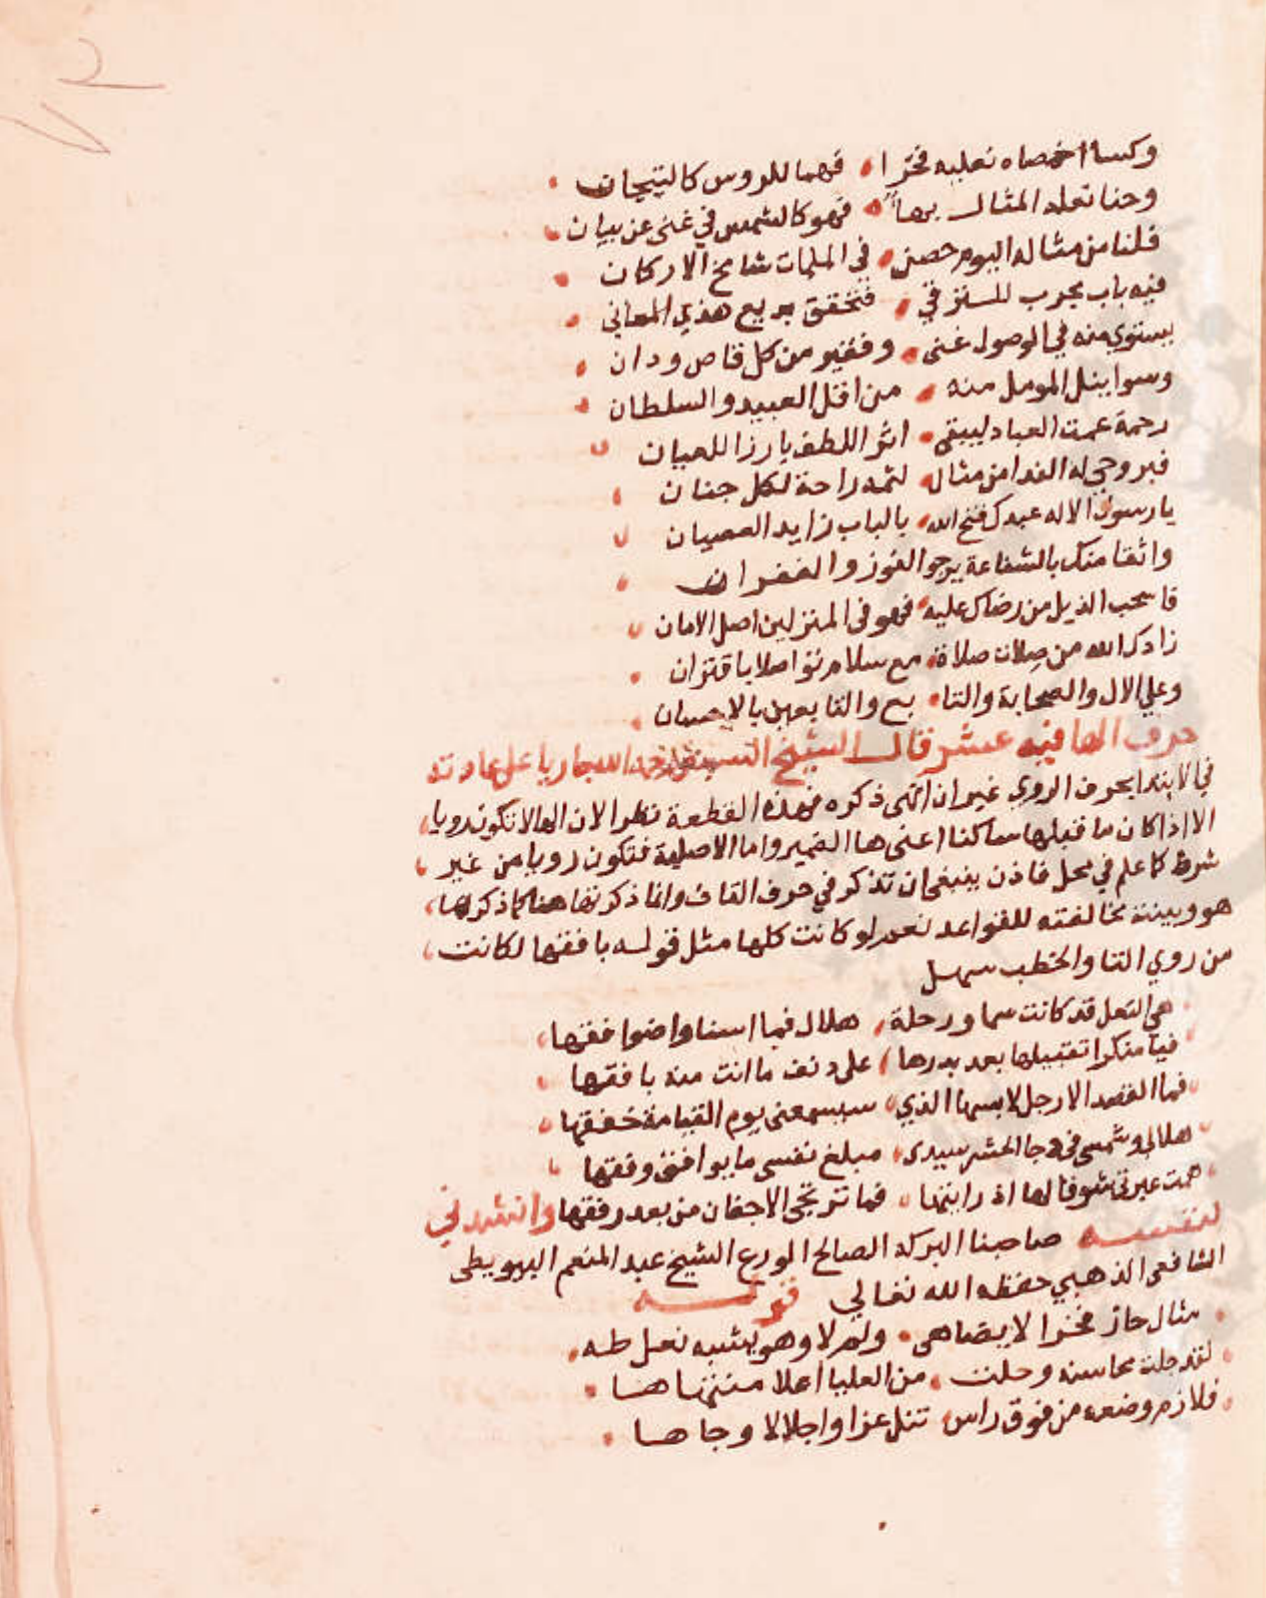 وكسا اخمصاه نعليه فخرا فهما للروس كالتيجان
وحنا نعله المثال بهاء فهو كالشمس في غنى عن بيان
فلنا من مثاله اليوم حصن في الملمات شامخ الاركان
فيه باب مجرب للترقي فتحقق بديع هذي المعاني
يستوي منه في الوصول غنى وفقير من كل قاص ودان
وسوا ينل المومل منه من اقل العبيد والسلطان
رحمة عمت العباد ليبقى اثر اللطف بارزا للعيان
فبروحي له الفدا من مثال لثمه راحة لكل جنان
يا رسول الاله عبدك فتح الله بالباب زايد العصيان
واثقا منك بالشفاعة يرجو الفوز والغفران
فاسحب الذيل من رضاك عليه فهو في المنزلين اصل الامان
زادك الله من صلات صلاة مع سلام تواصلا باقتران
وعلي الال والصحابة والتا بع والتابعين بالاحسان
حرف الها فيه عشر قال الشيخ السبتي رحمه الله جاريا على عادته
في الابتدا بحرف الروي غير ان انهى ذكره هذه القطعة نظر الان الها لا تكون رويا
الا اذا كان ما قبلها ساكنا اعنى ها الضمير واما الاصلية فتكون رويا من غير
شرط كما علم في محل فاذن ينبغي ان تذكر في حرف القاف وانما ذكرتها هنا كما ذكرها
هو وبينت مخالفته للقواعد نعم لو كانت كلها مثل قوله بافقها لكانت
من روي التا والخطب سهل
هي النعل قد كانت سما ورحلة هلال فما اسنا واضوا خفقها
فيا منكرا تقبيلها بعد بدرها على دنف ما انت منه بافقها
فما القصد الا رجل لابسها الذي سيسمعنى يوم القيامة خفقها
هلالي وشمسي في دجا الحشر سيدى مبلغ نفسي ما يوافق وفقها
همت عبرتي شوقا لها اذ رايتها فما ترتجى الاجفان من بعد رفقها وانشدني
لنفسه صاحبنا البركه الصالح الورع الشيخ عبد المنعم البهويطى
الشافعى الذهبي حفظه الله تعالي قوله
مثال حاز فخرا لا يضاهى ولم لا وهو يشبه نعل طه
لقد جلت محاسنه وحلت من العليا اعلا منتهاها
فلازم وضعه من فوق راس تنل عزا واجلالا وجاها